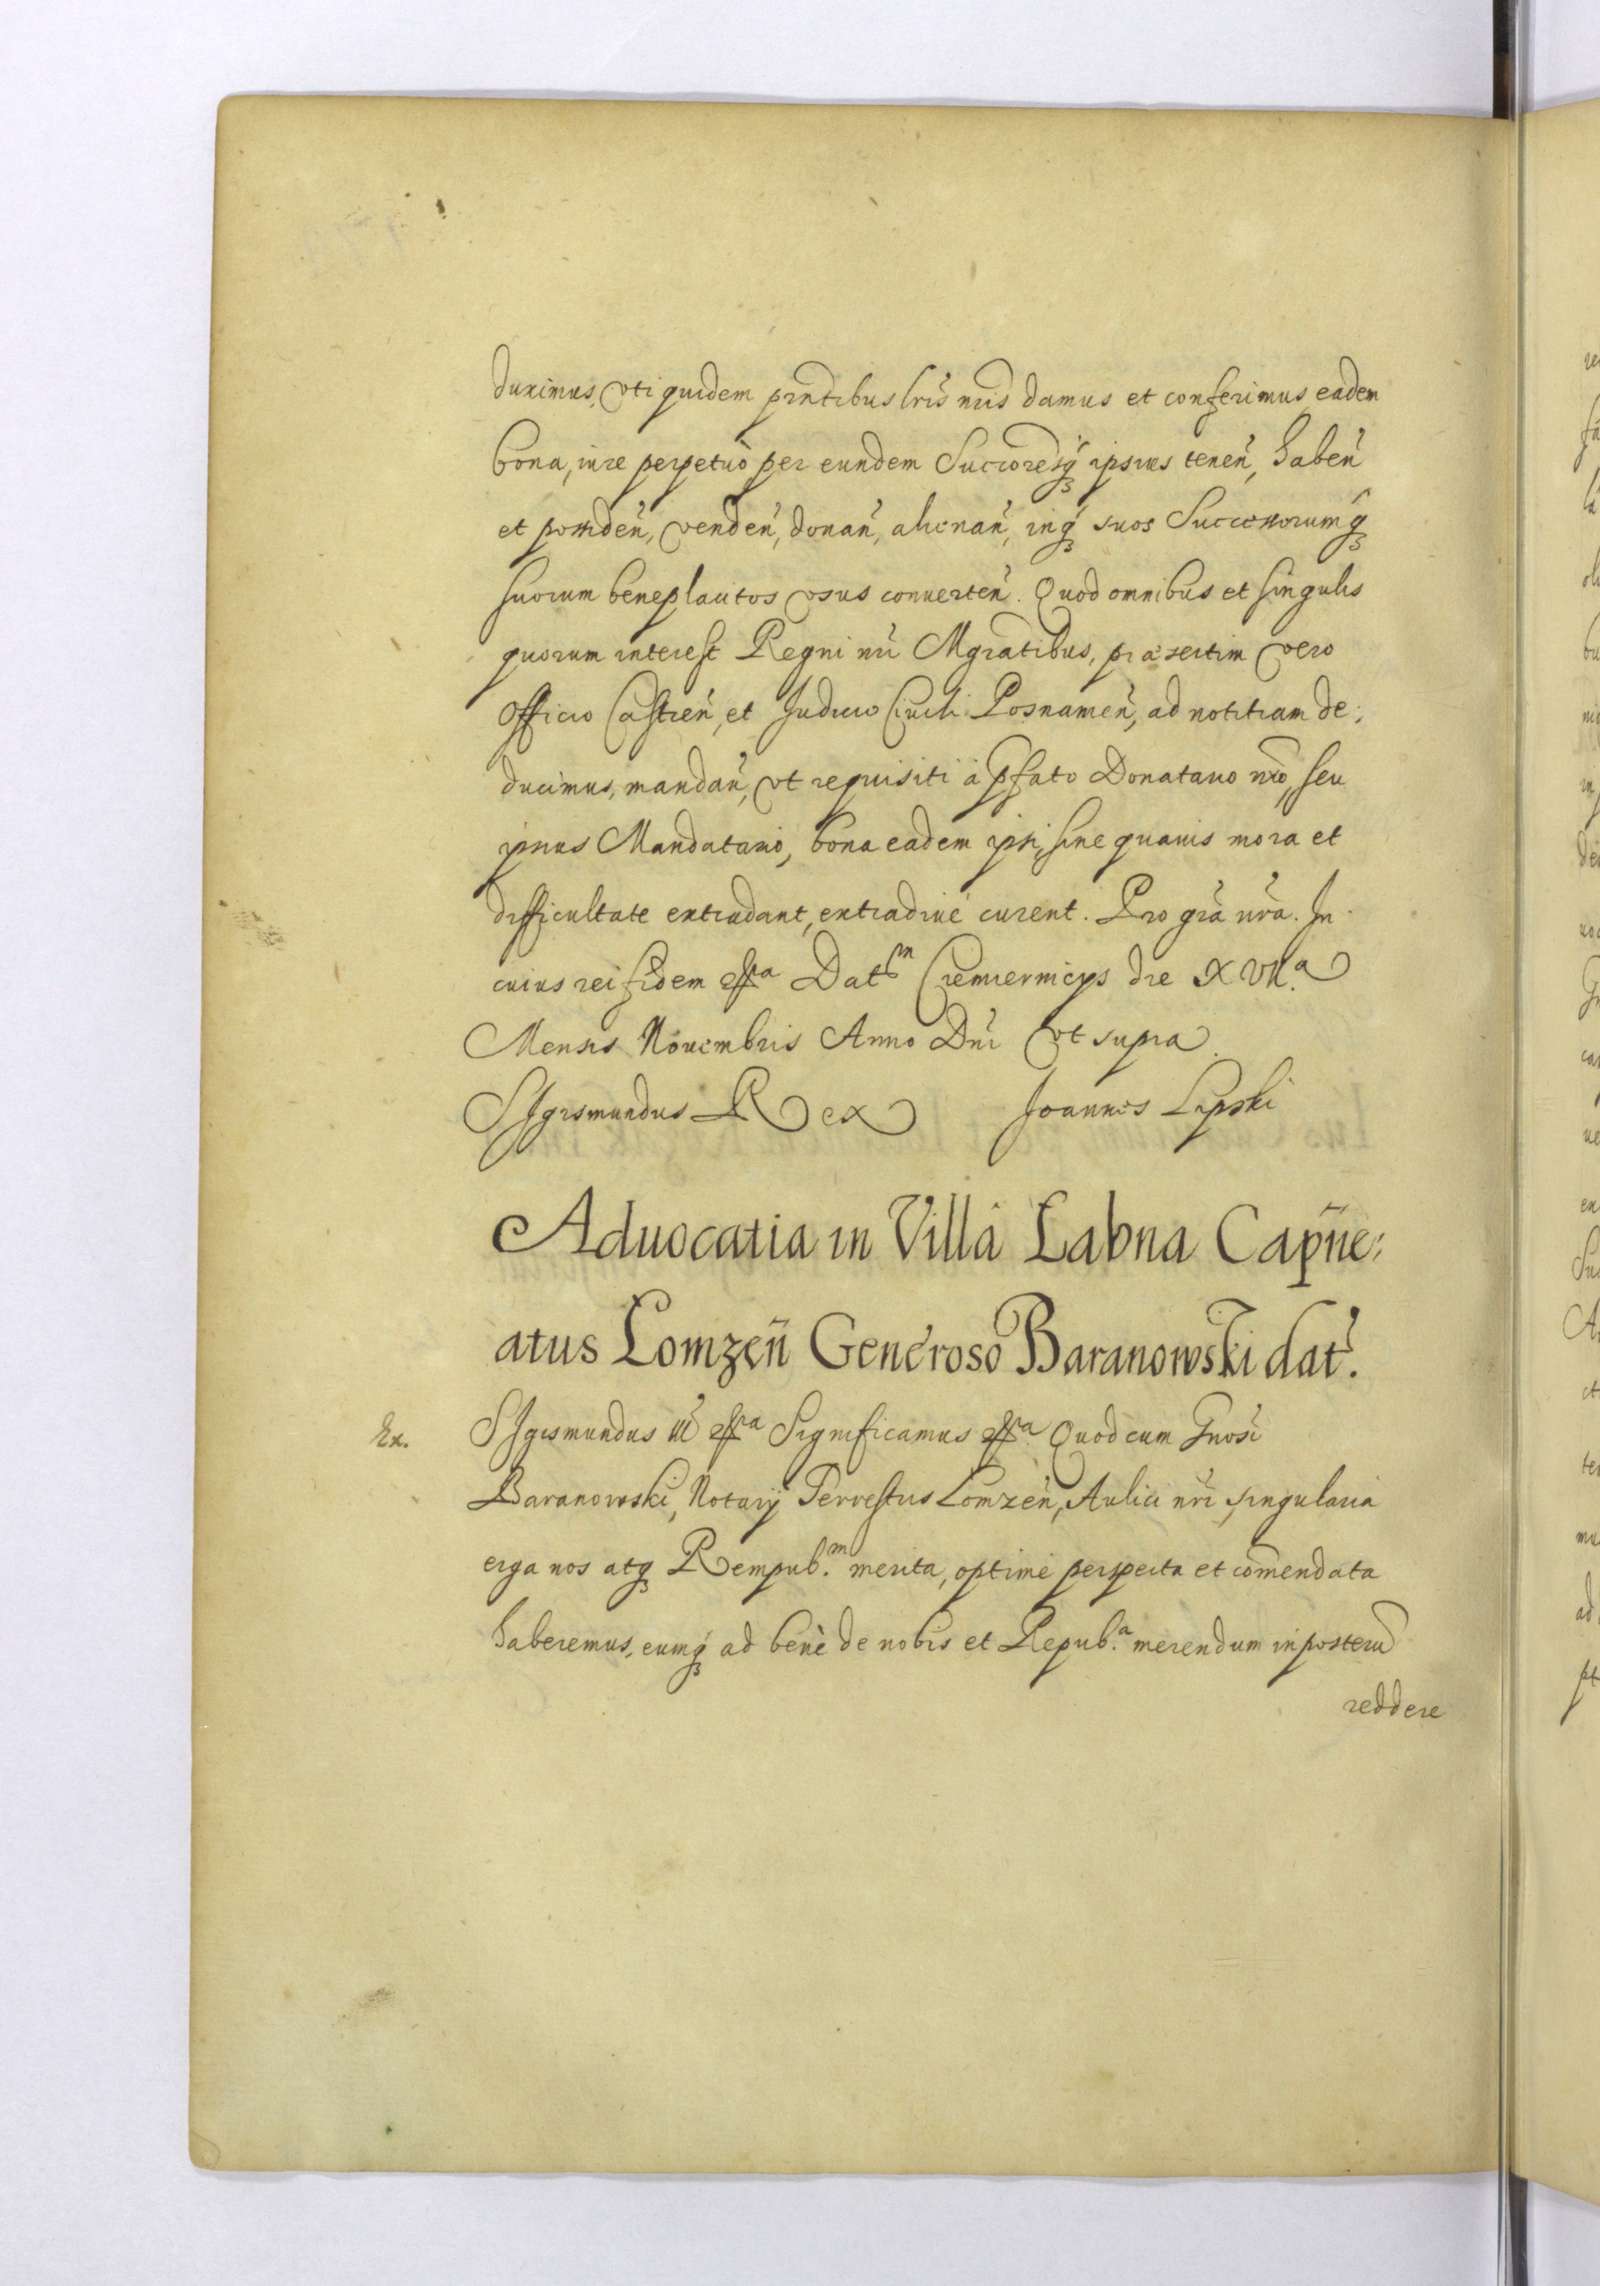 duximus, vti quidem pñtibus lr̃is nr̃is damus et conferimus eadem
bona, iure perpetuò per eundem Succoresq́ꝫ ipsius teneñ, habeñ
et possideñ, vendeñ, donañ, alienañ, inq́ꝫ suos Successorumq́ꝫ
suorum beneplacitos vsus conuerteñ. Quod omnibus et singulis
quorum interest Regni nr̃i Mgratibus, præsertim vero
Officio Castreñ, et Judicio Ciuili Posnanieñ, ad notitiam de:
ducimus, mandañ, vt requisiti à pfato Donatario nr̃o, seu
ipsius Mandatario, bona eadem ipsi, sine quauis mora et
difficultate extradant, extradiué curent. Pro gr̃a nr̃a. In
cuius rei fidem etc̃a Datᵐ Czemiernicijs die XVII.ª
Mensis Nouembris Anno Dñi vt supra.
SIgismundus Rex Joannes Lipski
Aduocatia in Villâ Labna Capñe:
atus Lomzeñ Generoso Baranowski dat̃.
Ex. SIgismundus III etc̃a Significamus etc̃a Quod cum Gnosi
Baranowski, Notarij Terrestris Lomzeñ, Aulici nr̃i, singularia
erga nos atqꝫ Rempub.ᵐ merita, optimè perspecta et com̃endata
haberemus, eumq́ꝫ ad benè de nobis et Repub.ª merendum in posterũ
reddere